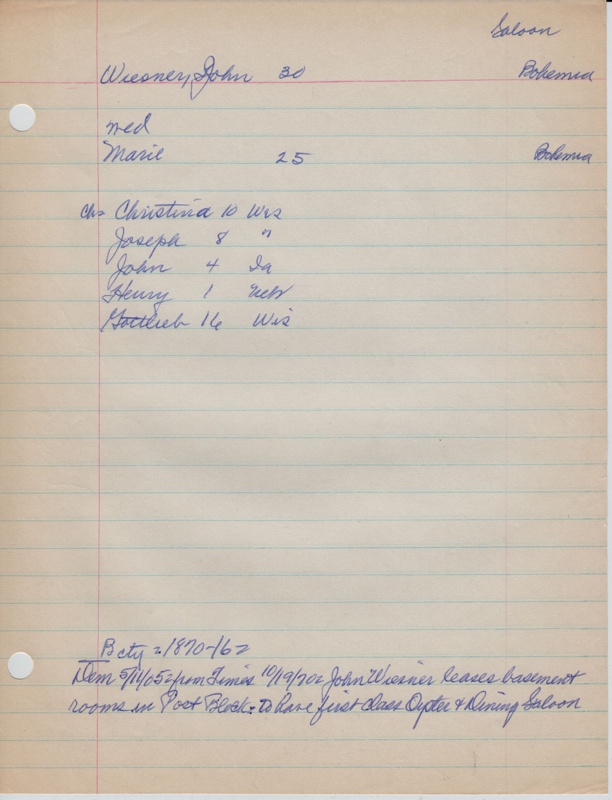 Saloon
Wiesner, John 30 Bohemia
med
Marie 25 Bohemia
ch= Christina 10 Wis
Joseph 8 "
John 4 Ia
Henry 1 Neb
Gottlieb 16 Wis
B cty = 1870-162
Dem 5/11/05 = from Times 10/19/70 = John Wiesner leases basement
rooms in Post Block = to have first class Oyster & Dining Saloon